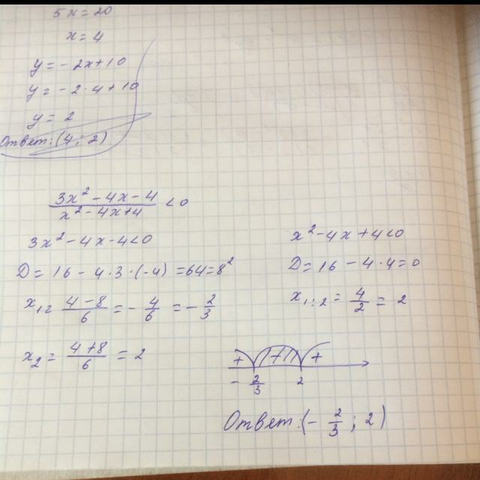 5x=20
x=4
y=-2x+10
y=-2·4+10
y=2
Ответ: (4; 2)
3x²-4x-4
x²-4x+4 <0
3x²-4x-4<0
D=16-4·3·(-4)=64=8²
x₁= 4-8/6 = -4/6 = -2/3
x₂= 4+8/6 = 2
x²-4x+4<0
D=16-4·4=0
x₁;₂= 4/2 = 2
+ + +
-2/3 2
Ответ: (-2/3; 2)